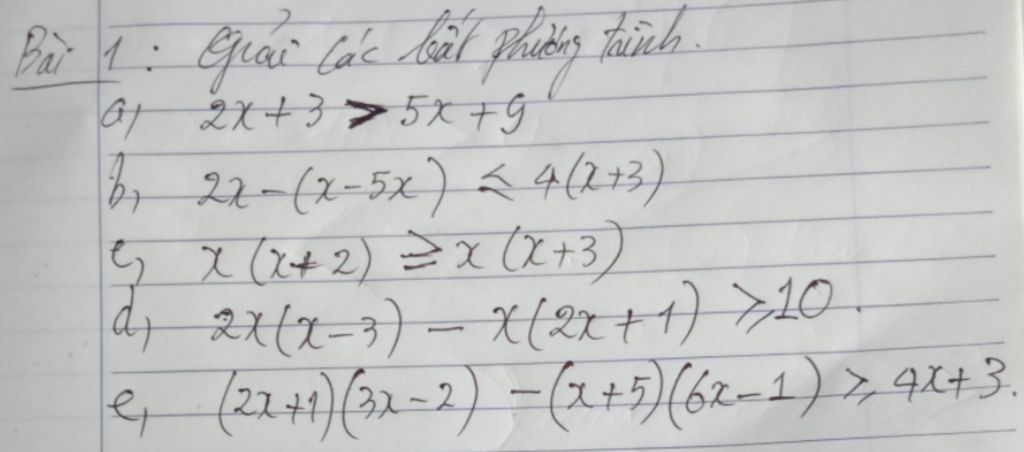 Bài 1: Giải các bất phương trình.
a, 2x + 3 > 5x + 9
b, 2x - (x - 5x) ≤ 4(x+3)
c, x (x + 2) ≥ x (x+3)
d, 2x(x-3) - x(2x+1) ≥ 10.
e, (2x+1)(3x-2) - (x+5)(6x-1) ≥ 4x+3.